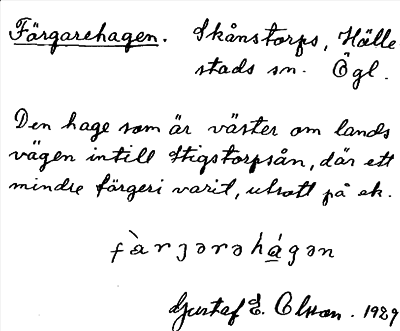 Färgarehagen. Skånstorps, Hälle
stads sn. Ögl.
Den hage som är väster om lands
vägen intill Stigstorpsån, där ett
mindre färgeri varit, utsatt på ek.
fàrjərəhágən
Gustaf E. Olsson. 1929